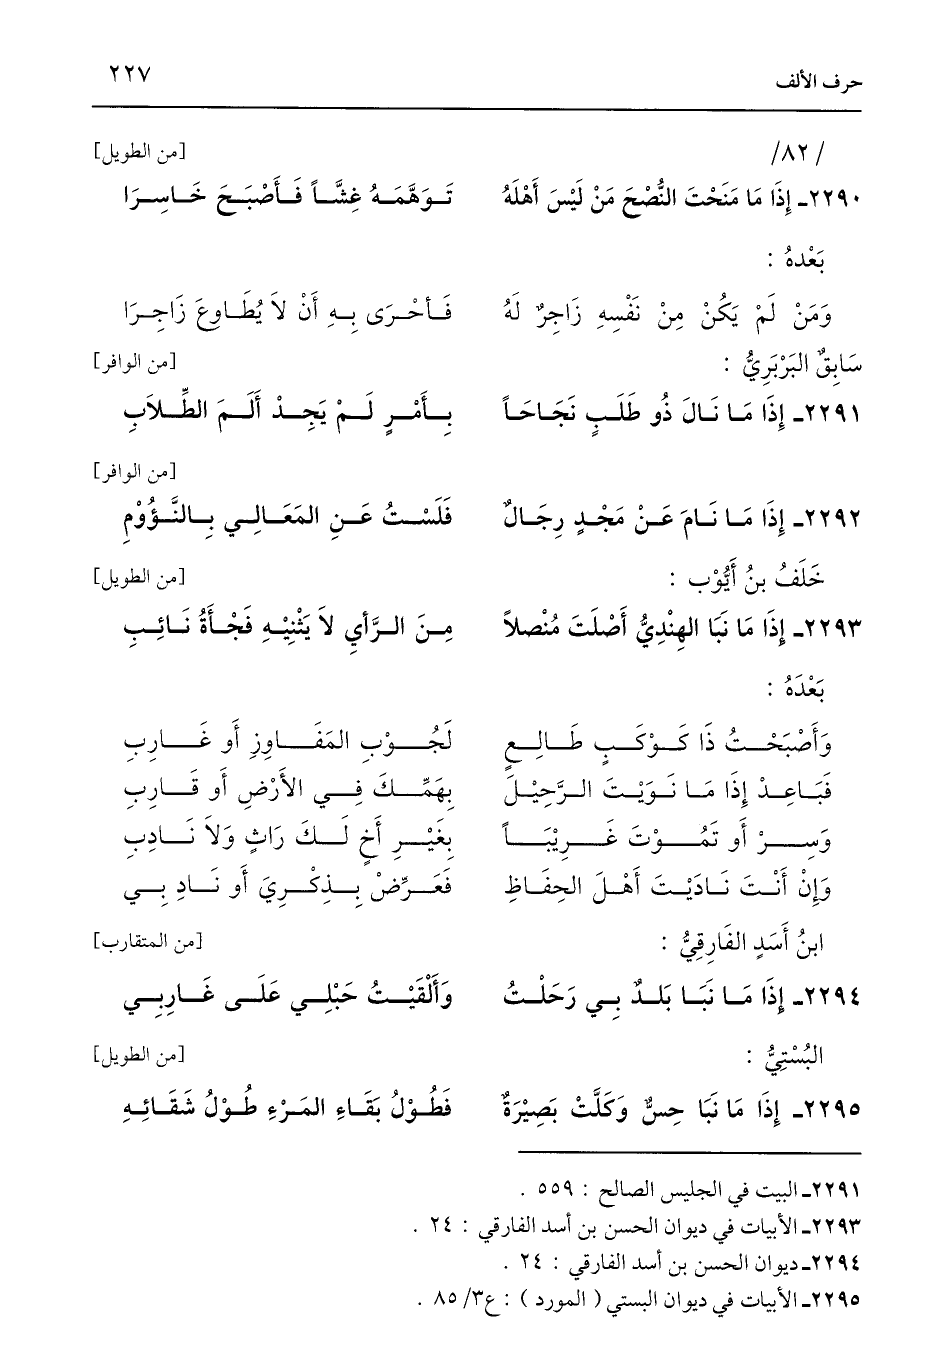 حرف الألف ٢٢٧
/٨٢/ [من الطويل]
٢٢٩٠ـ إِذَا مَا مَنَحْتَ النُّصْحَ مَنْ لَيْسَ أَهْلَهُ تَوَهَّمَهُ غِشَّاً فَأَصْبَحَ خَاسِرَا
بَعْدهُ :
وَمَنْ لَمْ يَكُنْ مِنْ نَفْسِهِ زَاجِرٌ لَهُ فَأَحْرَى بِهِ أَنْ لاَ يُطَاوِعَ زَاجِرَا
سَابِقٌ البَرْبَرِيُّ : [من الوافر]
٢٢٩١ـ إِذَا مَا نَالَ ذُو طَلَبٍ نَجَاحَاً بِأَمْرٍ لَمْ يَجِدْ أَلَمَ الطِّلاَبِ
[من الوافر]
٢٢٩٢ـ إِذَا مَا نَامَ عَنْ مَجْدٍ رِجَالٌ فَلَسْتُ عَنِ المَعَالِي بِالنَّؤُوْمِ
خَلَفُ بنُ أَيُّوْب : [من الطويل]
٢٢٩٣ـ إِذَا مَا نَبَا الهِنْدِيُّ أَصْلَتَ مُنْصلاً مِنَ الرَّأي لاَ يَثْنِيْهِ فَجْأَةُ نَائِبِ
بَعْدَهُ :
وَأَصْبَحْتُ ذَا كَوْكَبٍ طَالِعٍ لَجُوْبِ المَفَاوِزِ أَو غَارِبِ
فَبَاعِدْ إِذَا مَا نَوَيْتَ الرَّحِيْلَ بِهَمِّكَ فِي الأَرْضِ أَو قَارِبِ
وَسِرْ أَو تَمُوْتَ غَرِيْبَاً بِغَيْرِ أَخٍ لَكَ رَاثٍ وَلاَ نَادِبِ
وَإِنْ أَنْتَ نَادَيْتَ أَهْلَ الحِفَاظِ فَعَرِّضْ بِذِكْرِيَ أَو نَادِ بِي
ابنُ أَسَدٍ الفَارِقِيُّ : [من المتقارب]
٢٢٩٤ـ إِذَا مَا نَبَا بَلَدٌ بِي رَحَلْتُ وَأَلْقَيْتُ حَبْلِي عَلَى غَارِبِي
البُسْتِيُّ : [من الطويل]
٢٢٩٥ـ إِذَا مَا نَبَا حِسٌّ وَكَلَّتْ بَصِيْرَةٌ فَطُوْلُ بَقَاءِ المَرْءِ طُوْلُ شَقَائِهِ
٢٢٩١ـ البيت في الجليس الصالح : ٥٥٩ .
٢٢٩٣ـ الأبيات في ديوان الحسن بن أسد الفارقي : ٢٤ .
٢٢٩٤ـ ديوان الحسن بن أسد الفارقي : ٢٤ .
٢٢٩٥ـ الأبيات في ديوان البستي ( المورد ) : ع٣/ ٨٥ .